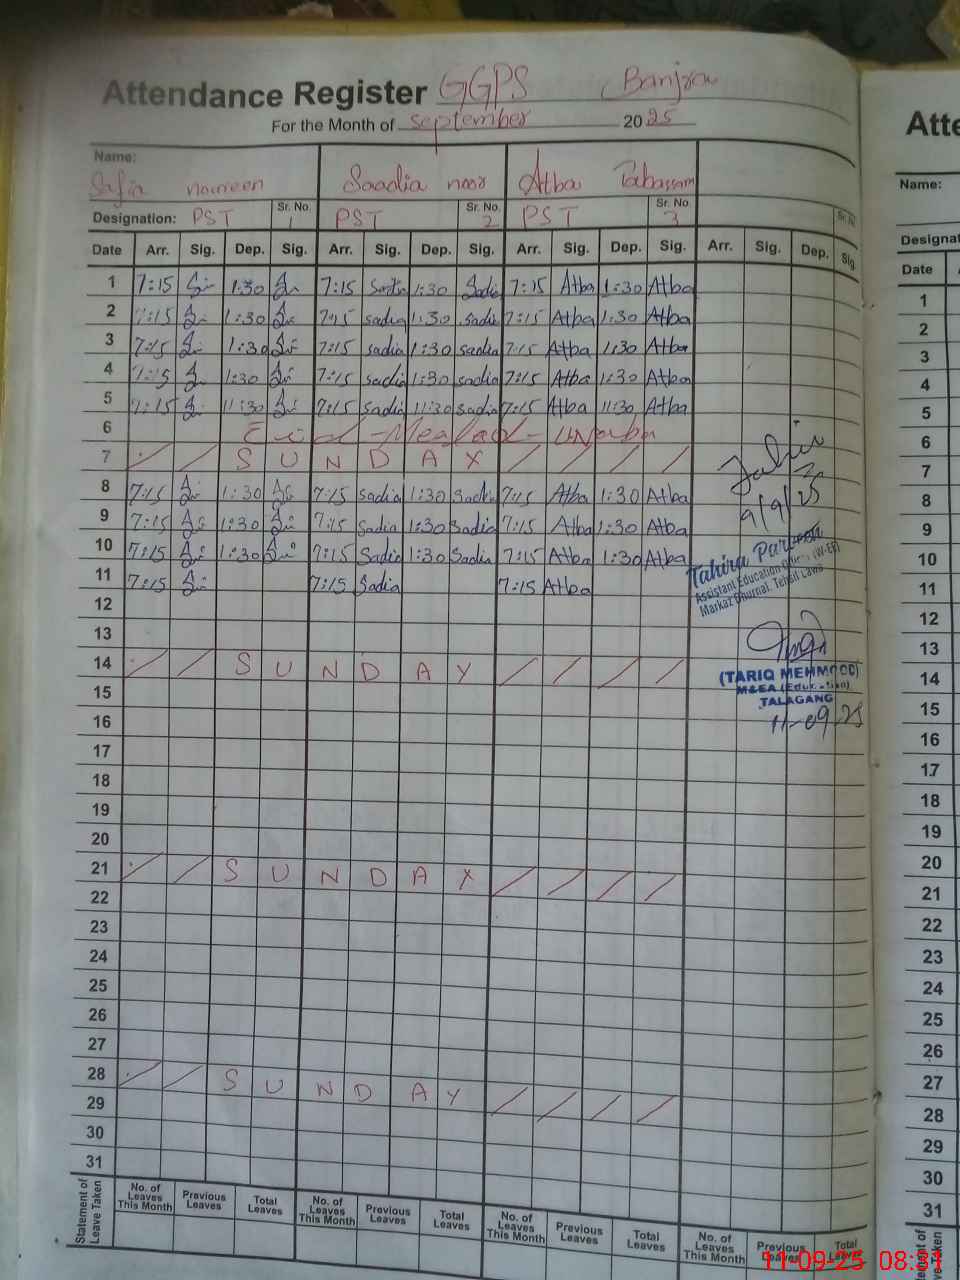 Attendance Register GGPS Banjra
For the Month of September 2025
Name: Safia noureen Saadia noor Atba Tabassam
Designation: PST Sr. No. 1 PST Sr. No. 2 PST Sr. No. 3 Sr. No
Date Arr. Sig. Dep. Sig. Arr. Sig. Dep. Sig. Arr. Sig. Dep. Sig. Arr. Sig. Dep. Sig.
1 7:15 1:30 7:15 Sadia 1:30 Sadia 7:15 Atba 1:30 Atba
2 7:15 1:30 7:15 sadia 1:30 sadia 7:15 Atba 1:30 Atba
3 7:15 1:30 7:15 sadia 1:30 sadia 7:15 Atba 1:30 Atba
4 7:15 1:30 7:15 sadia 1:30 sadia 7:15 Atba 1:30 Atba
5 7:15 11:30 7:15 sadia 11:30 sadia 7:15 Atba 11:30 Atba
6 Eid-Mealad-
7 SUNDAY
8 7:15 1:30 7:15 Sadia 1:30 Sadia 7:15 Atba 1:30 Atba
9 7:15 1:30 7:15 Sadia 1:30 Sadia 7:15 Atba 1:30 Atba
10 7:15 1:30 7:15 Sadia 1:30 Sadia 7:15 Atba 1:30 Atba
11 7:15 7:15 Sadia 7:15 Atba
12
13
14 SUNDAY
15
16
17
18
19
20
21 SUNDAY
22
23
24
25
26
27
28 SUNDAY
29
30
31
Statement of Leave Taken No. of Leaves This Month Previous Leaves Total Leaves No. of Leaves This Month Previous Leaves Total Leaves No. of Leaves This Month Previous Leaves Total Leaves No. of Leaves This Month Previous Leaves Total Leaves
9/9/25
Tahira Parveen
Assistant Education Officer (W-EE)
Markaz Dhurnal, Tehsil Lawa
(TARIQ MEHMOOD)
M&EA (Education)
TALAGANG
11-09-25
Atte
Name:
Designa
Date
1
2
3
4
5
6
7
8
9
10
11
12
13
14
15
16
17
18
19
20
21
22
23
24
25
26
27
28
29
30
31
11-09-25 08:31